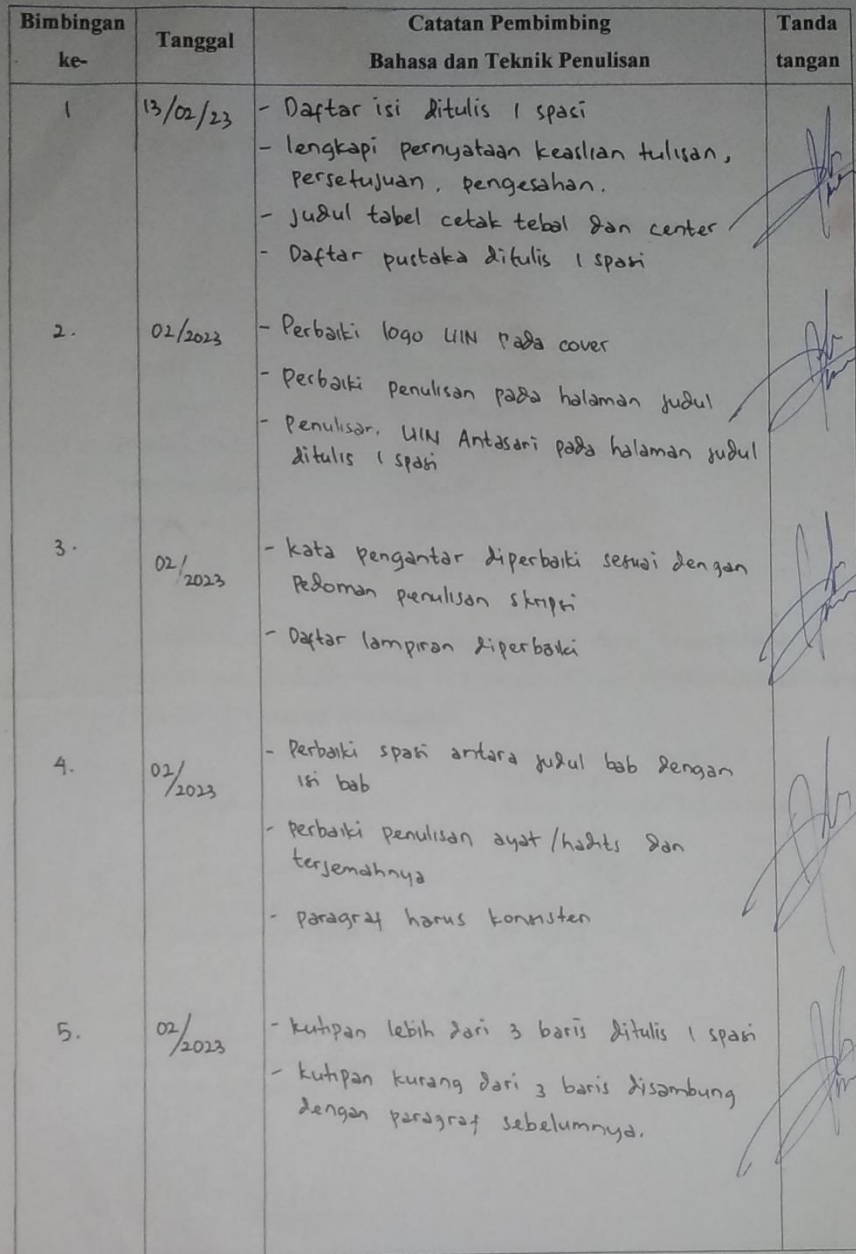 Bimbingan ke-
Tanggal
Catatan Pembimbing
Bahasa dan Teknik Penulisan
Tanda tangan
1 13/02/23 - Daftar isi ditulis 1 spasi
- lengkapi pernyataan keaslian tulisan,
persetujuan, pengesahan.
- judul tabel cetak tebal dan center
- Daftar pustaka ditulis 1 spasi
2. 02/2023 - Perbaiki logo UIN pada cover
- Perbaiki penulisan pada halaman judul
- Penulisan UIN Antasari pada halaman judul
ditulis 1 spasi
3. 02/2023 - kata pengantar diperbaiki sesuai dengan
Pedoman penulisan skripsi
- Daftar lampiran diperbaiki
4. 02/2023 - Perbaiki spasi antara judul bab dengan
isi bab
- perbaiki penulisan ayat/hadits dan
terjemahnya
- paragraf harus konsisten
5. 02/2023 - kutipan lebih dari 3 baris ditulis 1 spasi
- kutipan kurang dari 3 baris disambung
dengan paragraf sebelumnya.